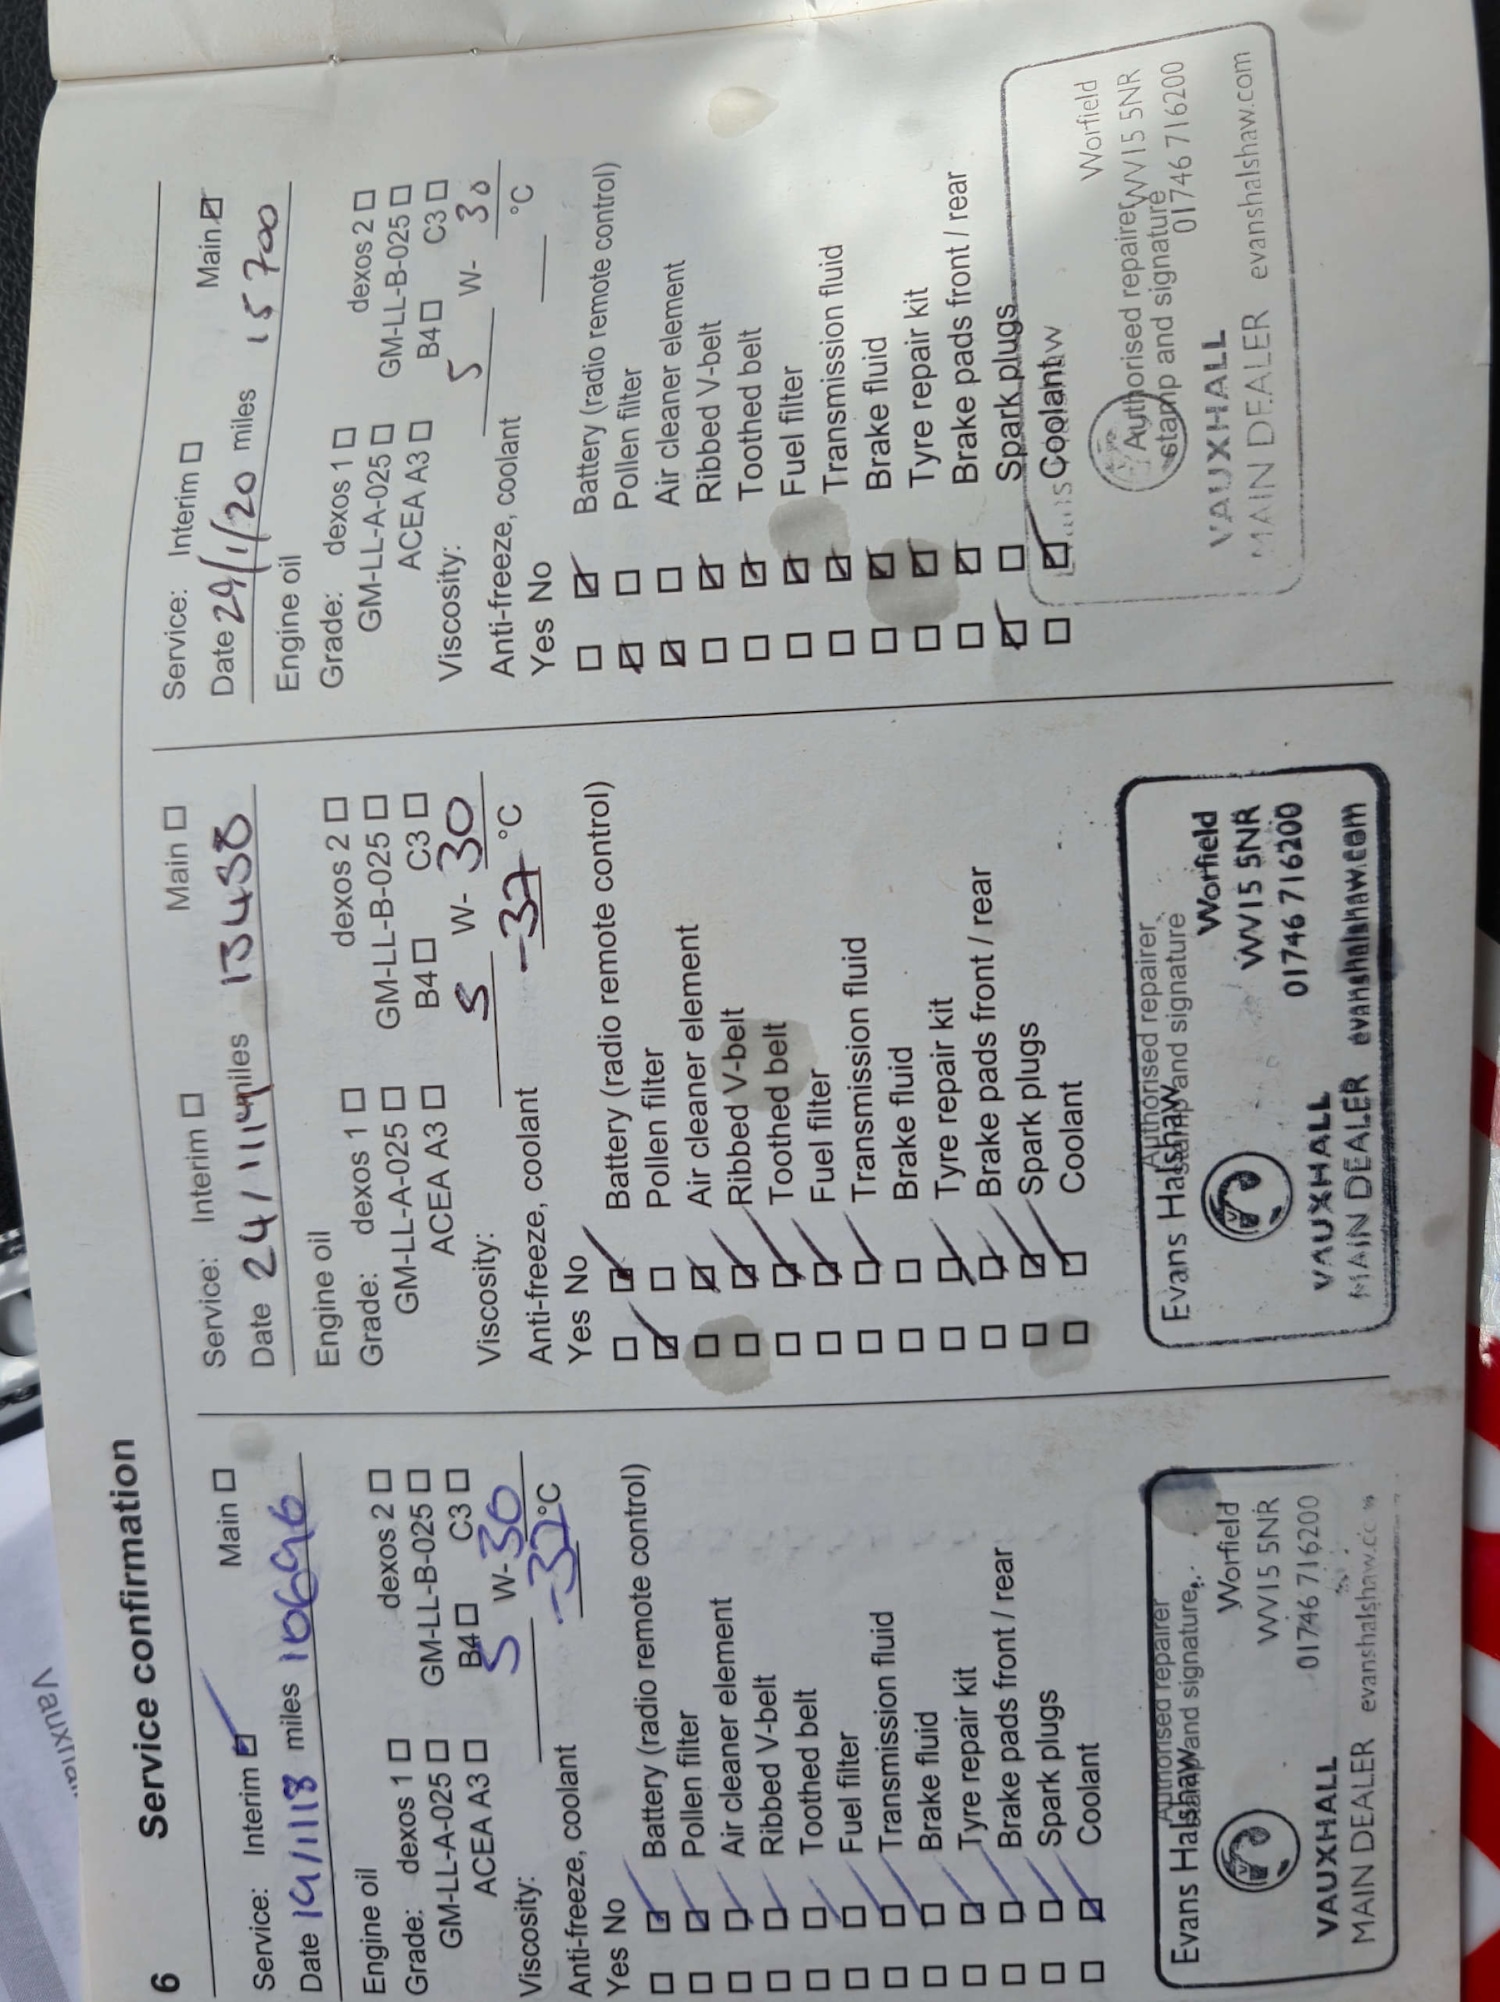 6 Service confirmation
Service: Interim Main
Date 19/1/18 miles 10696
Engine oil
Grade: dexos 1 dexos 2
GM-LL-A-025 GM-LL-B-025
ACEA A3 B4 C3
Viscosity: 5 W-30
Anti-freeze, coolant -32°C
Yes No
Battery (radio remote control)
Pollen filter
Air cleaner element
Ribbed V-belt
Toothed belt
Fuel filter
Transmission fluid
Brake fluid
Tyre repair kit
Brake pads front / rear
Spark plugs
Coolant
Authorised repairer
stamp and signature
Evans Halshaw
Worfield
WV15 5NR
01746 716200
VAUXHALL
MAIN DEALER evanshalshaw.co
Service: Interim Main
Date 24/1/19 miles 13438
Engine oil
Grade: dexos 1 dexos 2
GM-LL-A-025 GM-LL-B-025
ACEA A3 B4 C3
Viscosity: 5 W-30
Anti-freeze, coolant -37°C
Yes No
Battery (radio remote control)
Pollen filter
Air cleaner element
Ribbed V-belt
Toothed belt
Fuel filter
Transmission fluid
Brake fluid
Tyre repair kit
Brake pads front / rear
Spark plugs
Coolant
Authorised repairer
stamp and signature
Evans Halshaw
Worfield
WV15 5NR
01746 716200
VAUXHALL
MAIN DEALER evanshalshaw.com
Service: Interim Main
Date 29/1/20 miles 15700
Engine oil
Grade: dexos 1 dexos 2
GM-LL-A-025 GM-LL-B-025
ACEA A3 B4 C3
Viscosity: 5 W-30
Anti-freeze, coolant °C
Yes No
Battery (radio remote control)
Pollen filter
Air cleaner element
Ribbed V-belt
Toothed belt
Fuel filter
Transmission fluid
Brake fluid
Tyre repair kit
Brake pads front / rear
Spark plugs
Coolant
Authorised repairer
stamp and signature
Worfield
WV15 5NR
01746 716200
VAUXHALL
MAIN DEALER evanshalshaw.com